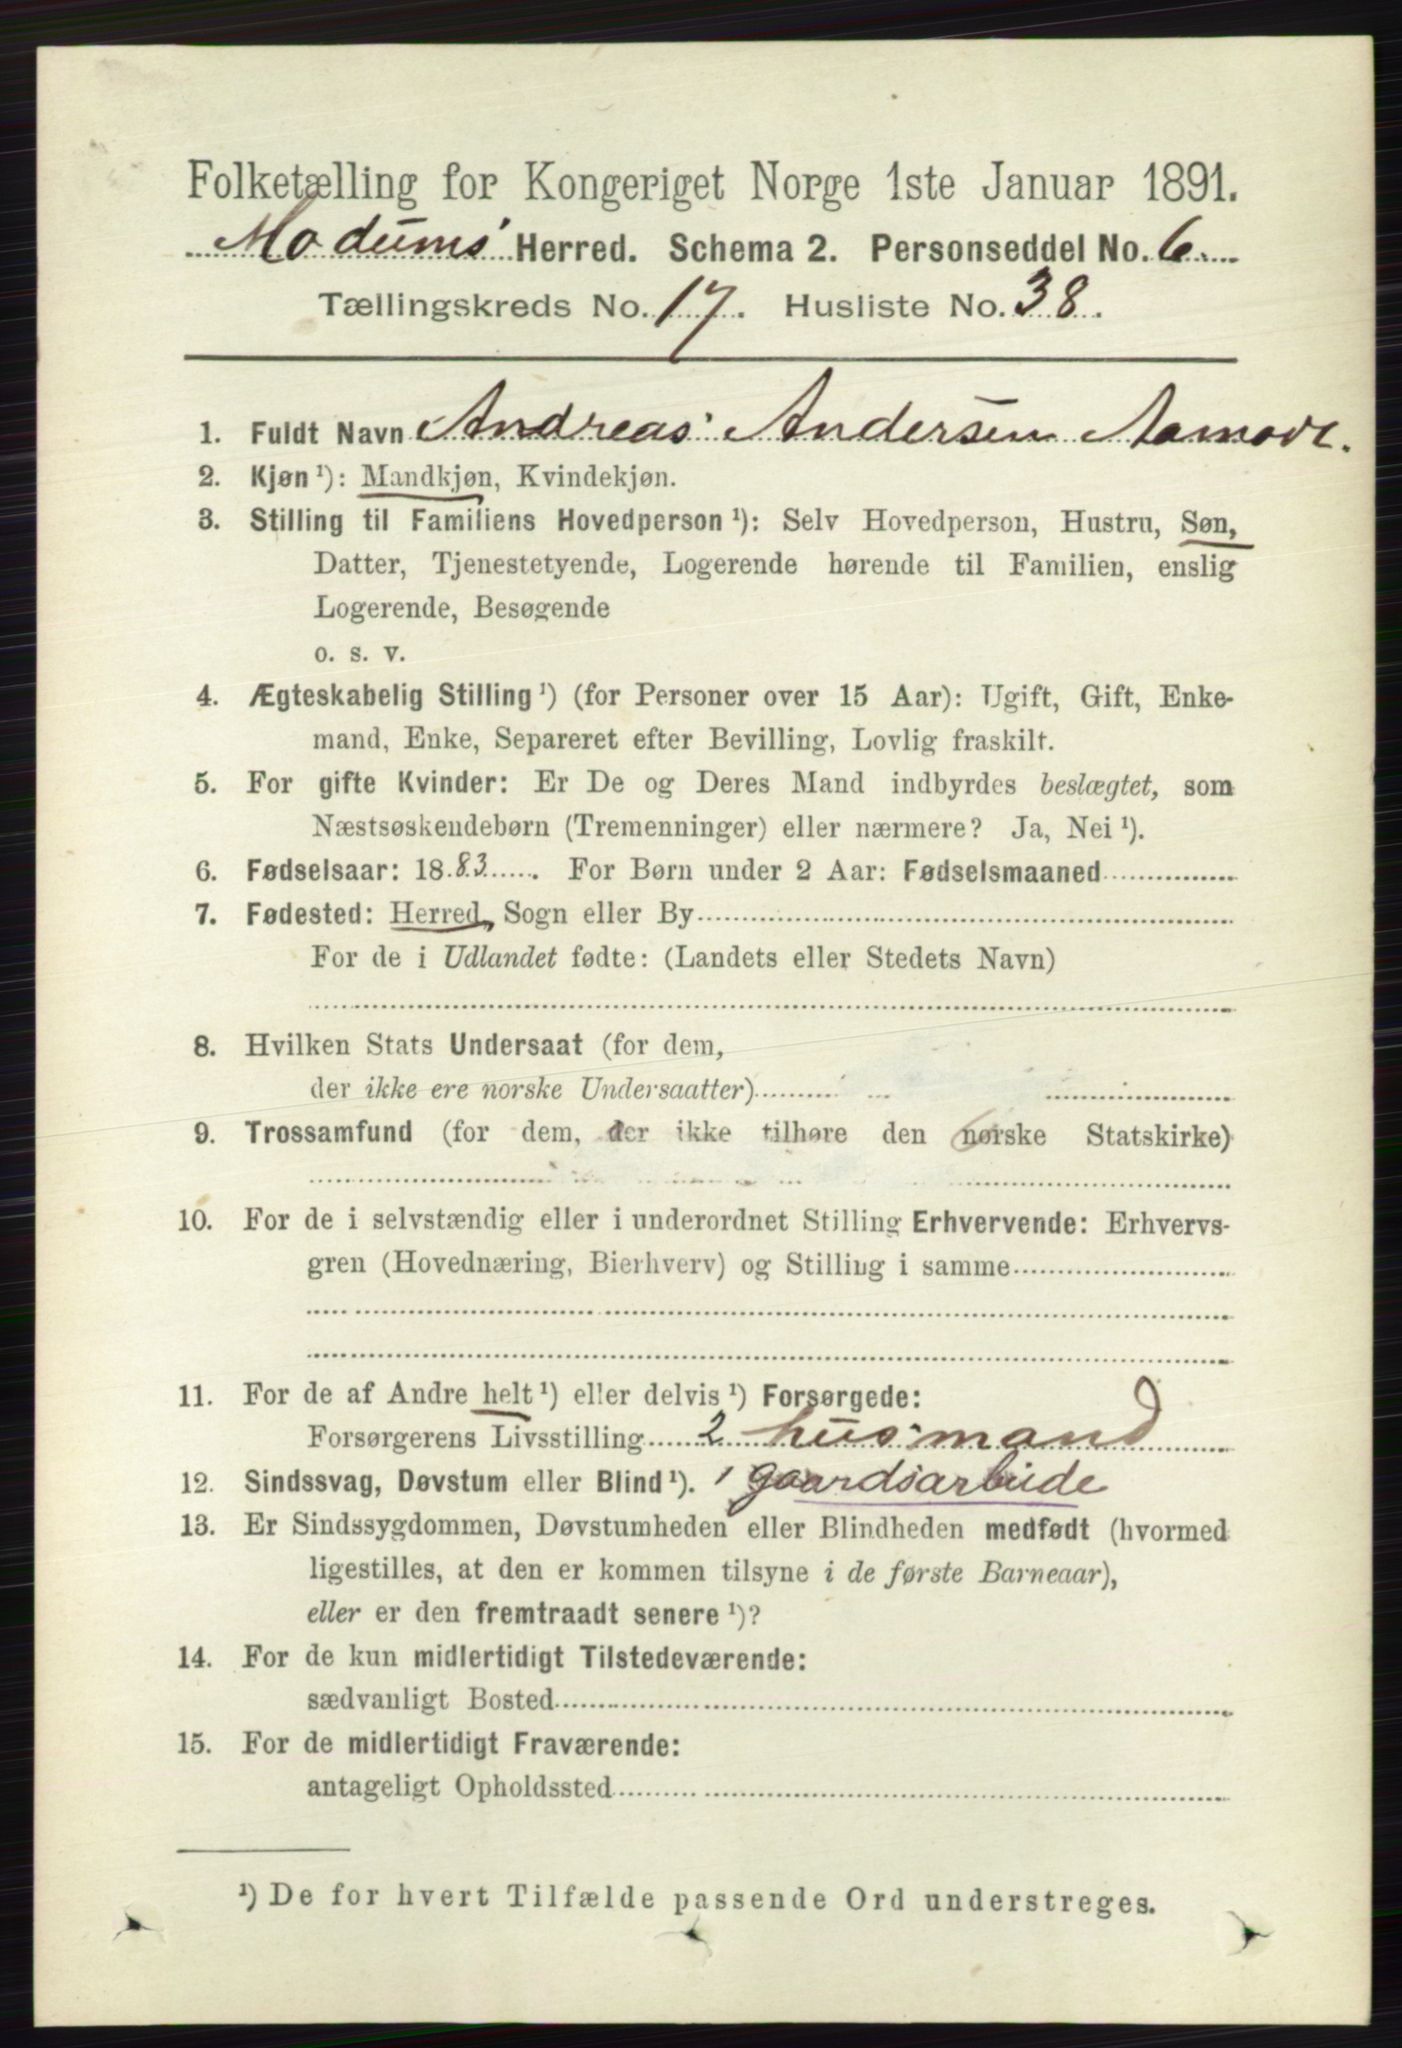 Folketælling for Kongeriget Norge 1ste Januar 1891.
Modums Herred. Schema 2. Personseddel No. 6.
Tællingskreds No. 17. Husliste No. 38.
1. Fuldt Navn Andreas Andersen Aamodt.
2. Kjøn ¹): Mandkjøn, Kvindekjøn.
3. Stilling til Familiens Hovedperson ¹): Selv Hovedperson, Hustru, Søn,
Datter, Tjenestetyende, Logerende hørende til Familien, enslig
Logerende, Besøgende
o. s. v.
4. Ægteskabelig Stilling ¹) (for Personer over 15 Aar): Ugift, Gift, Enke-
mand, Enke, Separeret efter Bevilling, Lovlig fraskilt.
5. For gifte Kvinder: Er De og Deres Mand indbyrdes beslægtet, som
Næstsøskendebørn (Tremenninger) eller nærmere? Ja, Nei ¹).
6. Fødselsaar: 1883. For Børn under 2 Aar: Fødselsmaaned
7. Fødested: Herred, Sogn eller By
For de i Udlandet fødte: (Landets eller Stedets Navn)
8. Hvilken Stats Undersaat (for dem,
der ikke ere norske Undersaatter)
9. Trossamfund (for dem, der ikke tilhøre den norske Statskirke)
10. For de i selvstændig eller i underordnet Stilling Erhvervende: Erhvervs-
gren (Hovednæring, Bierhverv) og Stilling i samme
11. For de af Andre helt ¹) eller delvis ¹) Forsørgede:
Forsørgerens Livsstilling 2 husmand
12. Sindssvag, Døvstum eller Blind ¹). 1 gaardsarbeide
13. Er Sindssygdommen, Døvstumheden eller Blindheden medfødt (hvormed
ligestilles, at den er kommen tilsyne i de første Barneaar),
eller er den fremtraadt senere ¹)?
14. For de kun midlertidigt Tilstedeværende:
sædvanligt Bosted
15. For de midlertidigt Fraværende:
antageligt Opholdssted
¹) De for hvert Tilfælde passende Ord understreges.